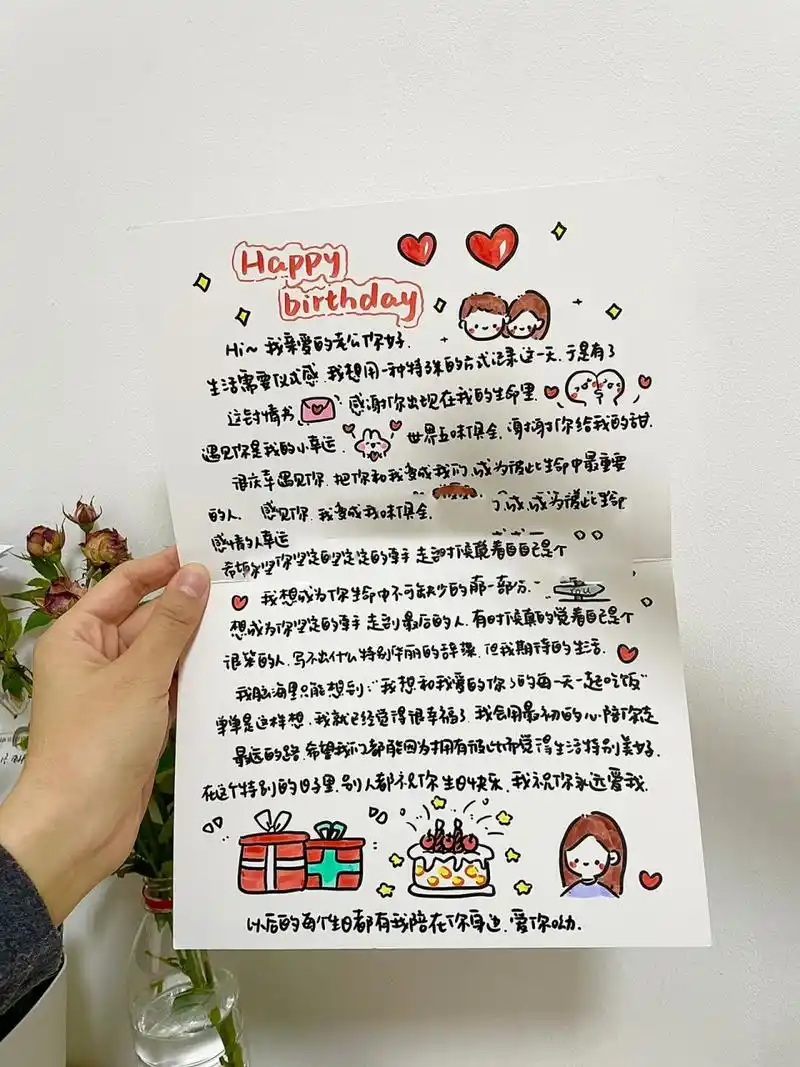 Happy
birthday
Hi~ 我亲爱的老公你好.
生活需要仪式感.我想用一种特殊的方式记录这一天.于是有了
这封情书 感谢你出现在我的生命里.
遇见你是我的小幸运. 世界五味俱全.谢谢你给我的甜.
很庆幸遇见你.把你和我变成我们.成为彼此生命中最重要
的人. 感见你.我变成我味俱全. 成.成为彼此生命
感情的人幸运
你坚定的坚定定的牵手 走到时候觉着自己是个
我想成为你生命中不可缺少的那一部分. you
想成为你坚定的牵手 走到最后的人.有时候真的觉着自己是个
很笨的人.写不出什么特别华丽的辞藻.但我期待的生活.
我脑海里只能想到:"我想和我爱的你的每一天一起吃饭"
单单是这样想.我就已经觉得很幸福了.我会用最初的心.陪你走
最远的路.希望我们都能因为拥有彼此而觉得生活特别美好.
在这个特别的日子里.别人都祝你生日快乐.我祝你永远爱我.
以后的每个生日都有我陪在你身边.爱你呦.